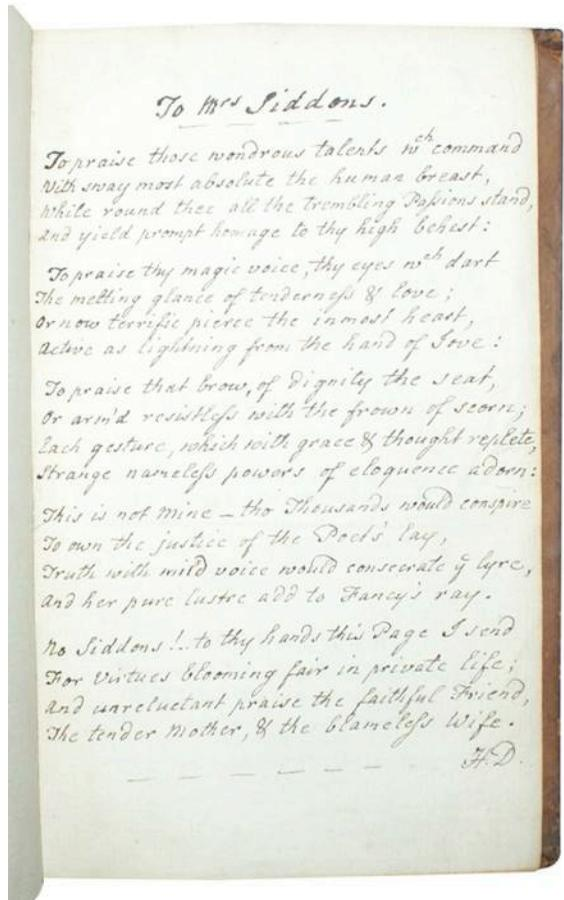 To Mrs Siddons.
To praise those wondrous talents wch command
With sway most absolute the human breast,
While round thee all the trembling Passions stand,
And yield prompt homage to thy high behest:
To praise thy magic voice, thy eyes wch dart
The melting glance of tenderness & love;
Or now terrific pierce the inmost heart,
Active as lightning from the hand of Jove:
To praise that brow, of dignity the seat,
Or arm'd resistless with the frown of scorn;
Each gesture, which with grace & thought replete,
Strange nameless powers of eloquence adorn:
This is not mine – tho Thousands would conspire
To own the justice of the Poet's lay,
Truth with mild voice would consecrate ye lyre,
And her pure lustre add to Fancy's ray.
No Siddons!.. to thy hands this Page I send
For Virtues blooming fair in private life;
And unreluctant praise the faithful Friend,
The tender Mother, & the blameless Wife.
H.D.